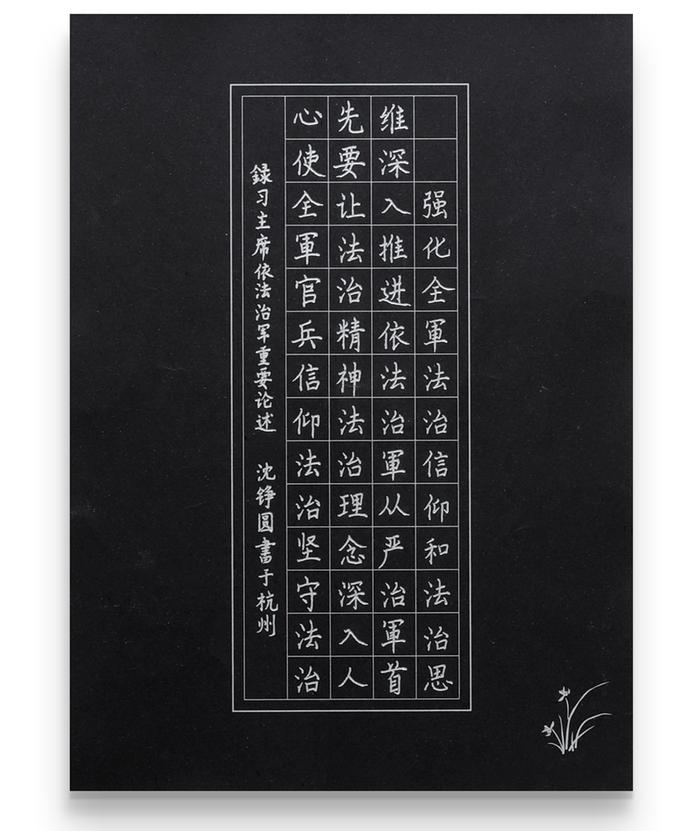 强化全軍法治信仰和法治思
维深入推进依法治軍从严治軍首
先要让法治精神法治理念深入人
心使全軍官兵信仰法治坚守法治
録习主席依法治军重要论述 沈铮圆書于杭州